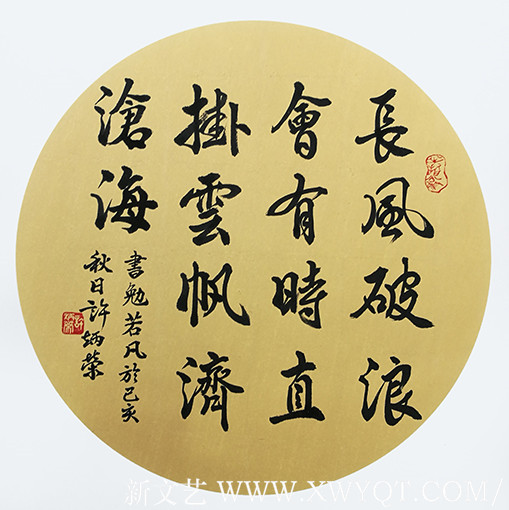 長風破浪
會有時直
掛雲帆濟
滄海
書勉若凡於己亥
秋日許炳榮
新文艺 WWW.XWYQT.COM/